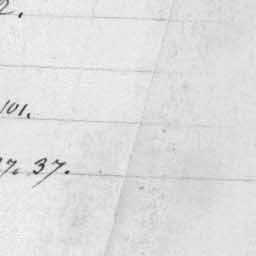 2.
101.
7. 37.